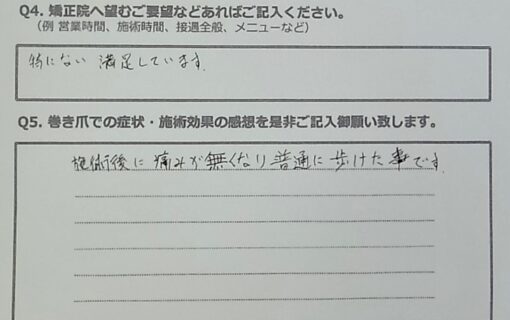 Q4. 矯正院へ望むご要望などあればご記入ください。
（例 営業時間、施術時間、接遇全般、メニューなど）
特にない 満足しています。
Q5. 巻き爪での症状・施術効果の感想を是非ご記入御願い致します。
施術後に痛みが無くなり普通に歩けた事です。